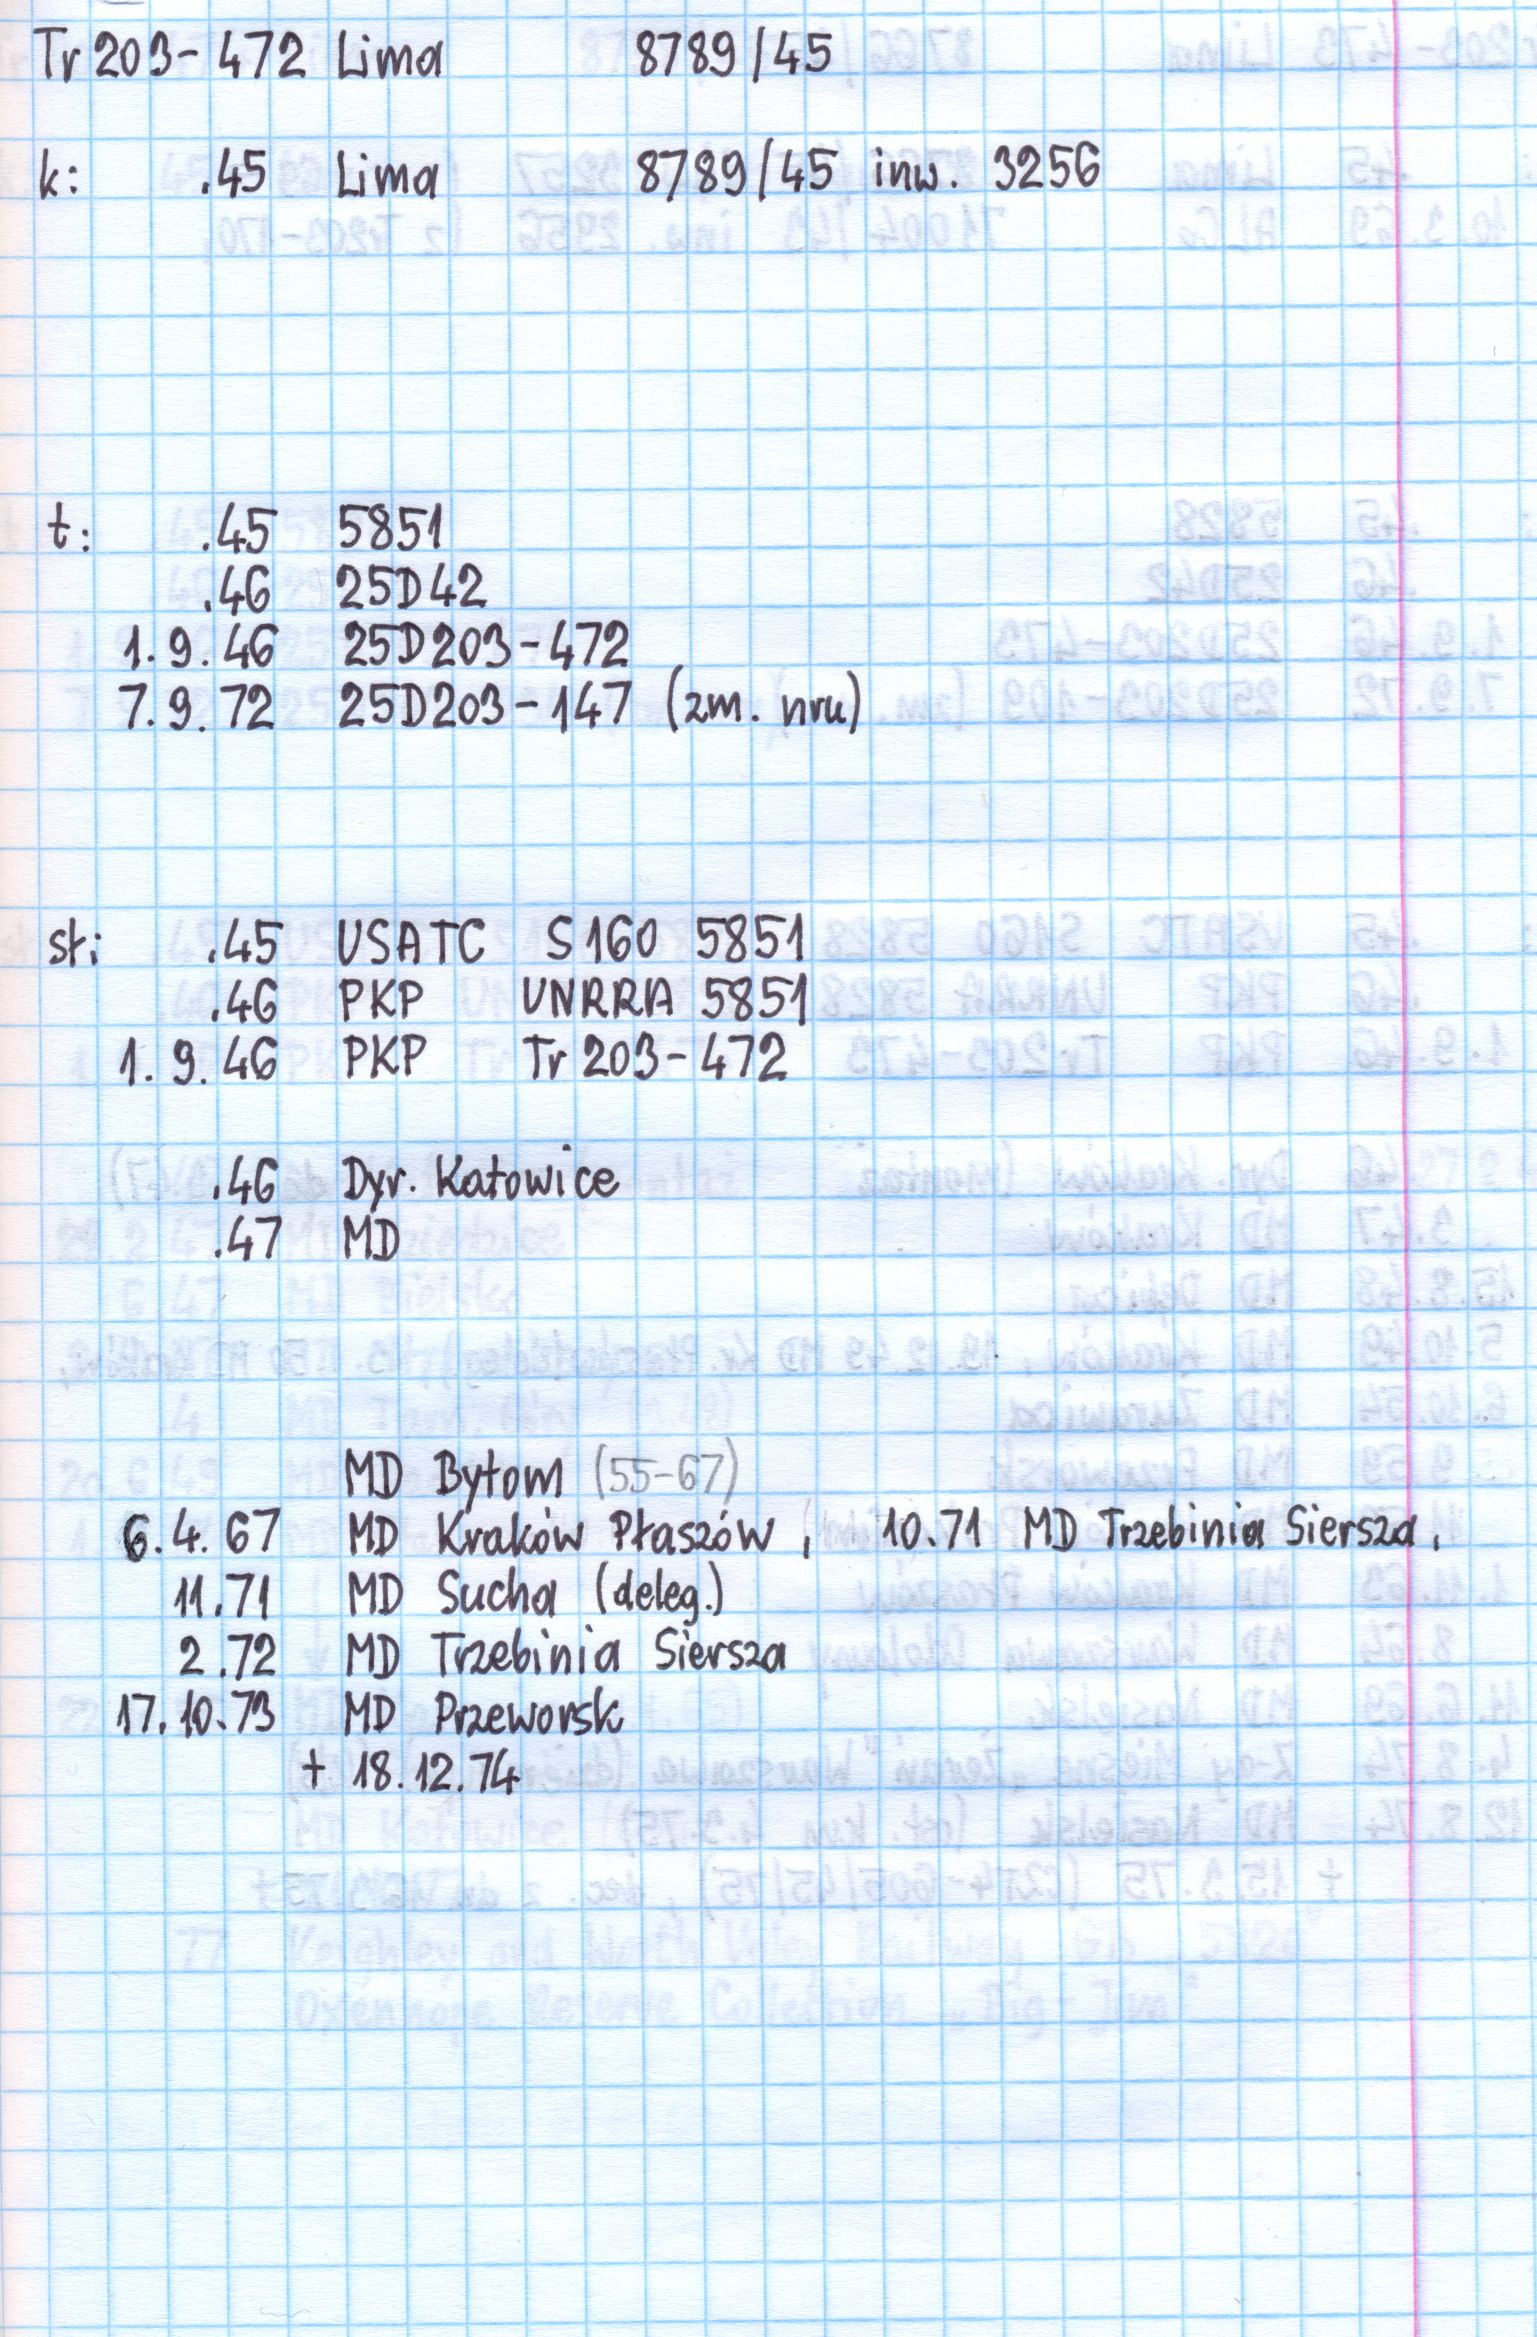 Tr 203-472 Lima 8789/45
k: .45 Lima 8789/45 inw. 3256
t: .45 5851
.46 25D42
1.9.46 25D203-472
7.9.72 25D203-147 (zm. nru)
sł: .45 USATC S160 5851
.46 PKP UNRRA 5851
1.9.46 PKP Tr 203-472
.46 Dyr. Katowice
.47 MD
MD Bytom (55-67)
6.4.67 MD Kraków Płaszów, 10.71 MD Trzebinia Siersza,
11.71 MD Sucha (deleg.)
2.72 MD Trzebinia Siersza
17.10.73 MD Przeworsk
+ 18.12.74